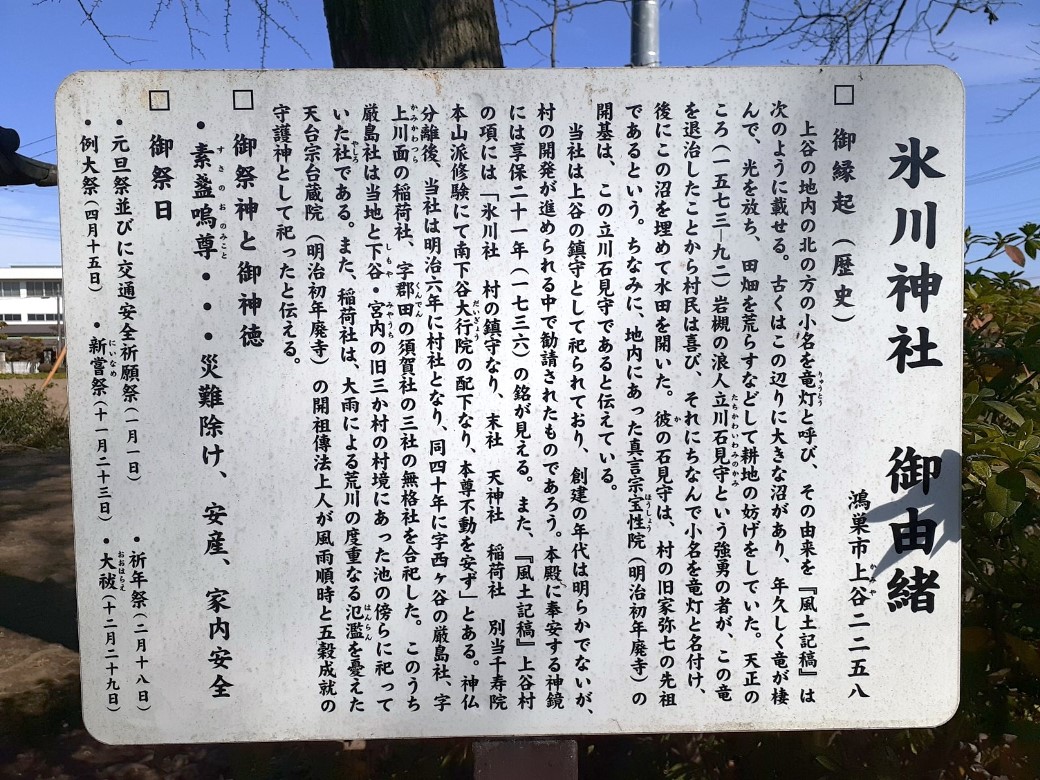 氷川神社 御由緒
鴻巣市上谷二二五八
□ 御縁起（歴史）
上谷の地内の北の方の小名を竜灯と呼び、その由来を『風土記稿』は
次のように載せる。古くはこの辺りに大きな沼があり、年久しく竜が棲
んで、光を放ち、田畑を荒らすなどして耕地の妨げをしていた。天正の
ころ（一五七三―九二）岩槻の浪人立川石見守という強勇の者が、この竜
を退治したことから村民は喜び、それにちなんで小名を竜灯と名付け、
後にこの沼を埋めて水田を開いた。彼の石見守は、村の旧家弥七の先祖
であるという。ちなみに、地内にあった真言宗宝性院（明治初年廃寺）の
開基は、この立川石見守であると伝えている。
当社は上谷の鎮守として祀られており、創建の年代は明らかでないが、
村の開発が進められる中で勧請されたものであろう。本殿に奉安する神鏡
には享保二十一年（一七三六）の銘が見える。また、『風土記稿』上谷村
の項には「氷川社 村の鎮守なり、末社 天神社 稲荷社 別当千寿院
本山派修験にて南下谷大行院の配下なり、本尊不動を安ず」とある。神仏
分離後、当社は明治六年に村社となり、同四十年に字西ヶ谷の厳島社、字
上川面の稲荷社、字郡田の須賀社の三社の無格社を合祀した。このうち
厳島社は当地と下谷・宮内の旧三か村の村境にあった池の傍らに祀って
いた社である。また、稲荷社は、大雨による荒川の度重なる氾濫を憂えた
天台宗台蔵院（明治初年廃寺）の開祖傳法上人が風雨順時と五穀成就の
守護神として祀ったと伝える。
□ 御祭神と御神徳
・素盞嗚尊・・・災難除け、安産、家内安全
□ 御祭日
・元旦祭並びに交通安全祈願祭（一月一日） ・祈年祭（二月十八日）
・例大祭（四月十五日） ・新嘗祭（十一月二十三日） ・大祓（十二月二十九日）